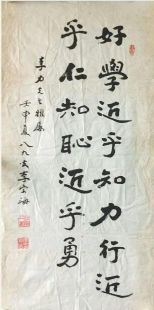 好學近乎知力行近
乎仁知恥近乎勇
李力先生雅屬
壬申夏八九叟李宏海